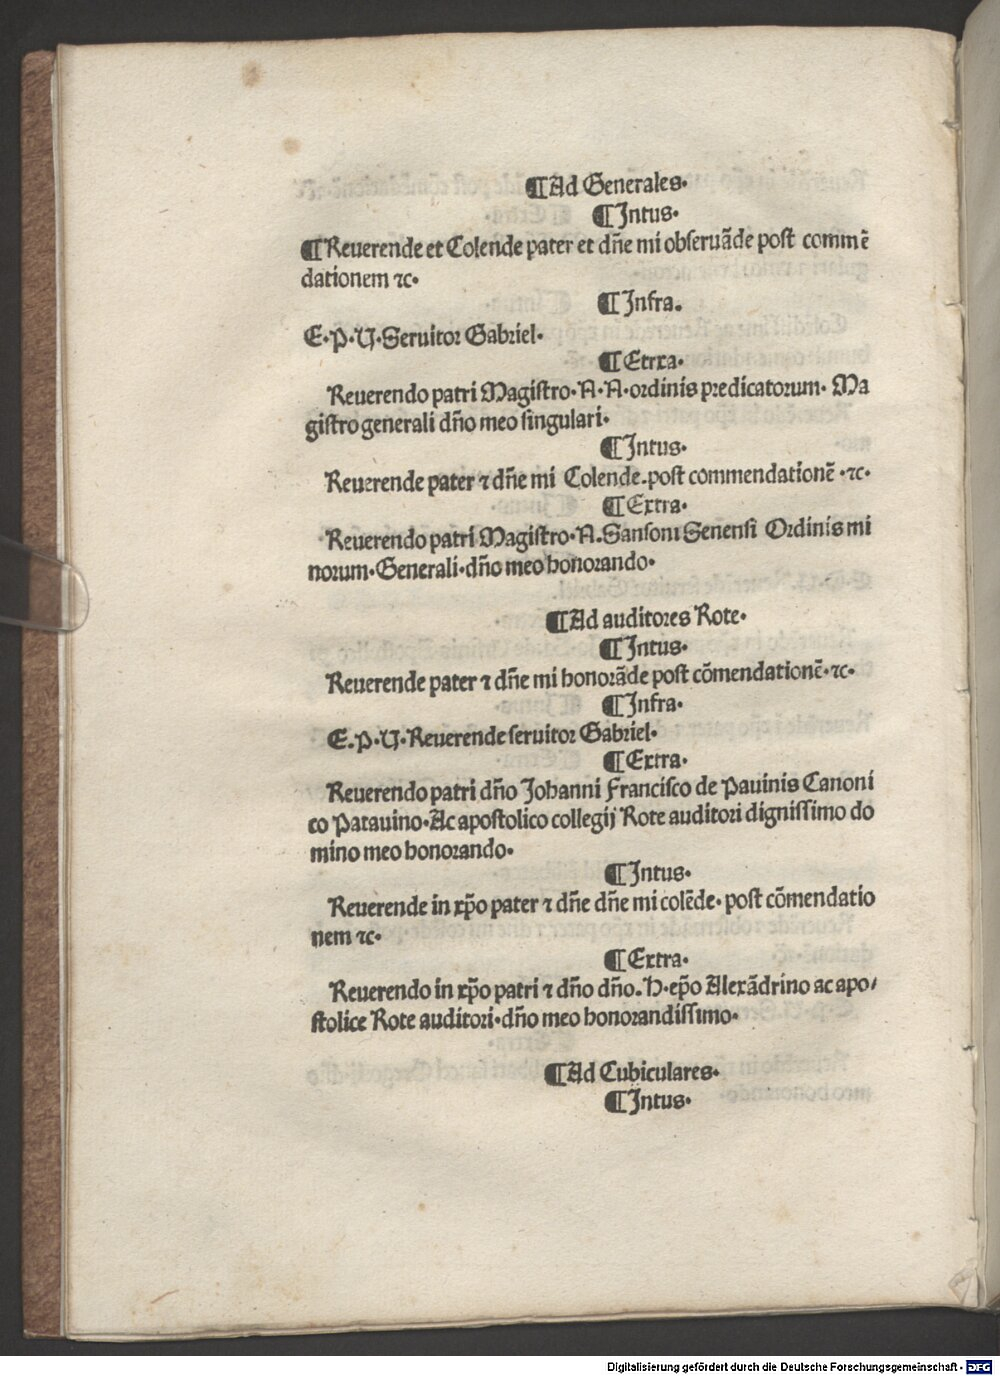 ¶Ad Generales.
¶Intus.
¶Reuerende et Colende pater et dñe mi obseruāde post commē
dationem ⁊c.
¶Infra.
E.P.V.Seruitor Gabriel.
¶Etrxa.
Reuerendo patri Magistro.N.N.ordinis predicatorum. Ma
gistro generali dño meo singulari.
¶Intus.
Reuerende pater ⁊ dñe mi Colende.post commendationē .⁊c.
¶Extra.
Reuerendo patri Magistro.N.Sansoni Senensi Ordinis mi
norum.Generali.dño meo honorando.
¶Ad auditores Rote.
¶Intus.
Reuerende pater ⁊ dñe mi honorāde post cōmendationē.⁊c.
¶Infra.
E.P.V.Reuerende seruitor Gabriel.
¶Extra.
Reuerendo patri dño Johanni Francisco de Pauinis Canoni
co Patauino.Ac apostolico collegij Rote auditori dignissimo do
mino meo honorando.
¶Intus.
Reuerende in xp̄o pater ⁊ dñe dñe mi colēde. post cōmendatio
nem ⁊c.
¶Extra.
Reuerendo in xp̄o patri ⁊ dño dño.H.ep̄o Alexādrino ac apo/
stolice Rote auditori.dño meo honorandissimo.
¶Ad Cubiculares.
¶Intus.
Digitalisierung gefördert durch die Deutsche Forschungsgemeinschaft - DFG